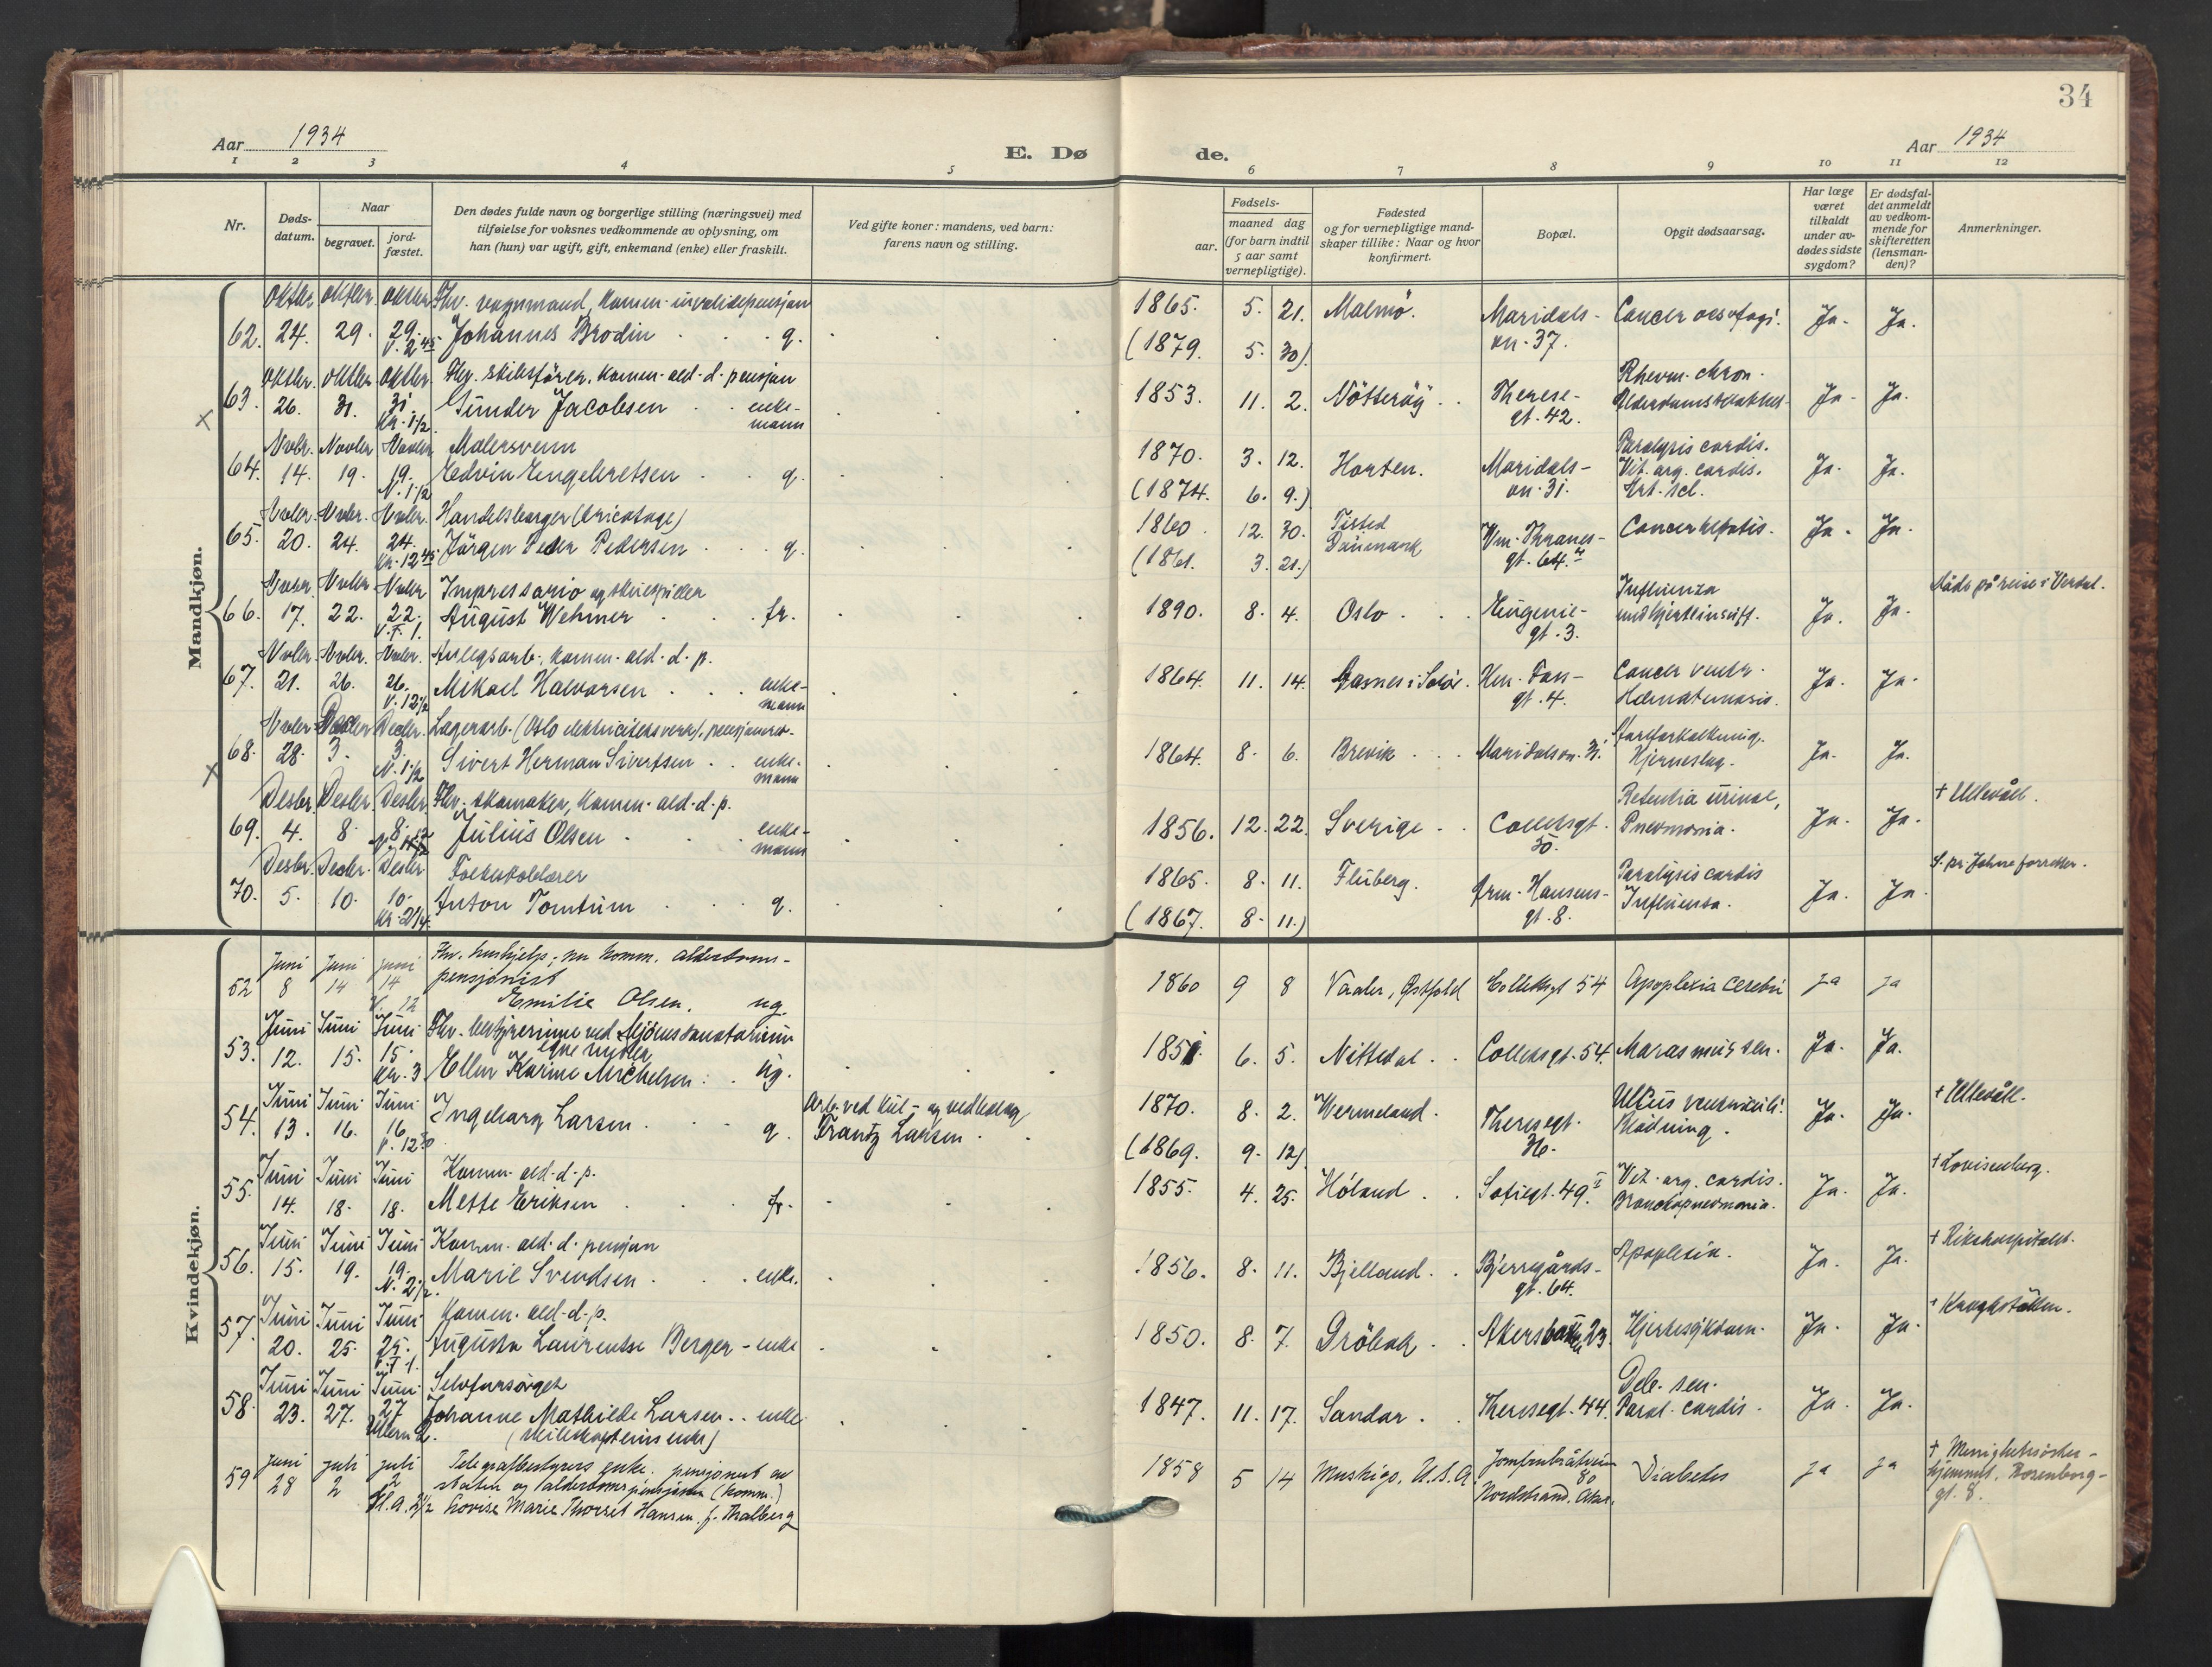 34
Aar 1934
E. Dø
de.
Aar 1934
1 2 3 4 5
6 7 8 9 10 11 12
Nr.
Døds-
datum.
Naar
begravet.
jord-
fæstet.
Den dødes fulde navn og borgerlige stilling (næringsvei) med
tilføielse for voksnes vedkommende av oplysning, om
han (hun) var ugift, gift, enkemand (enke) eller fraskilt.
Ved gifte koner: mandens, ved barn:
farens navn og stilling.
Fødsels-
aar.
maaned dag
(for barn indtil
5 aar samt
vernepligtige).
Fødested
og for vernepligtige mand-
skaper tillike: Naar og hvor
konfirmert.
Bopæl.
Opgit dødsaarsag.
Har læge
været
tilkaldt
under av-
dødes sidste
sygdom?
Er dødsfal-
det anmeldt
av vedkom-
mende for
skifteretten
(lensman-
den)?
Anmerkninger.
Mandkjøn.
Oktbr. Oktbr. Oktbr. Fhv. vognmand, komm. invalidepensjon
62. 24. 29. 29. Johannes Brodin g. 1865. 5. 21. Malmö. Maridals- Cancer oesofagi. Ja. Ja.
V. 2 45
(1879. 5. 30) vn. 37.
Oktbr. Oktbr. Oktbr. Fhv. skibsfører, komm. ald. d. pensjon
Rheum. chron.
x 63. 26. 31. 31. Gunder Jacobsen enke- 1853. 11. 2. Nötteröy Therese- Ja. Ja.
Kr. 1 1/2 mann gt. 42.
Novbr. Novbr. Novbr. Malersvenn
Paralysis cordis.
64. 14. 19. 19. Edvin Engebretsen g. 1870. 3. 12. Horten. Maridals- Vit. org. cordis. Ja. Ja.
N. 1 1/2
(1874. 6. 9.) vn. 31. Art. scl.
Novbr. Novbr. Novbr. Handelsborger (tricotage)
65. 20. 24. 24. Jörgen Peder Pedersen g. 1860. 12. 30. Tisted Danmark Vm. Thranes- Cancer hepatis. Ja. Ja.
Kr. 12 45
(1861. 3. 21.) gt. 64.
Novbr. Novbr. Novbr. Impressario og skuespiller
Influenza Døde på reise i Verdal.
66. 17. 22. 22. August Wehmer fr. 1890. 8. 4. Oslo Eugenie- med hjerteinsuff. Ja. Ja.
V. F. 1. gt. 3.
Novbr. Novbr. Novbr. Anlegsarb., komm. ald. d. p.
67. 21. 26. 26. Mikael Halvorsen enke- 1864. 11. 14. Aasnes i Solør. gt. 4. Cancer ventr. Ja. Ja.
V. 12 1/2 mann Hæmatemesis.
Novbr. Decbr. Decbr. Lagerarb. (Oslo elektricitetsverk), pensjonert
Aareforkalkning.
x 68. 28. 3. 3. Sivert Herman Sivertsen enke- 1864. 8. 6. Brevik Maridalsvn. 31. Hjerneslag. Ja. Ja.
N. 1 1/2 mann
Desbr. Desbr. Desbr. Fhv. skomaker, komm. ald. d. p.
Retentia urinae, + Ullevål.
69. 4. 8. 8. Julius Olsen enke- 1856. 12. 22. Sverige Collettsgt. 30. Pneumonia. Ja. Ja.
mann
Desbr. Decbr. Desbr. Folkeskolelærer
70. 5. 10. 10. Anton Tomtum g. 1865. 8. 11. Fluberg. Arm. Hansens- Paralysis cordis Ja. Ja. S. pr. Johne forretter.
Kr. 2 1/4
(1867. 8. 11.) gt. 8. Influensa.
Kvindekjøn.
Juni Juni Juni Fhv. hushjelp, nu komm. alderdoms-
pensjonist
52 8 14 14 Emilie Olsen. ug. 1860 9 8 Vaaler, Østfold Collettsgt 54 Apoplexia cerebri ja ja
V. 12
Juni Juni Juni Fhv. bestyrerinne ved Mjøens sanatorium
egne midler
53. 12. 15. 15. Ellen Karine Michelsen ug. 1851. 6. 5. Nittedal Collettsgt. 54. Marasmus sen. Ja. Ja.
Kr. 3
Juni Juni Juni Arb. ved kul- og vedhandel
54. 13. 16. 16 Ingeborg Larsen g. Frantz Larsen 1870. 8. 2. Wermeland. Theresegt. Ulcus ventriculi. Ja. Ja. + Ullevåll.
V. 12 30 Blödning.
(1869. 9. 12)
Juni Juni Juni Komm. ald. d. p.
55. 14. 18. 18. Mette Eriksen fr. 1855. 4. 25. Höland Sofiegt. 49. I Vit. org. cordis. Ja. Ja. + Lovisenberg.
Bronchopneumonia.
Juni Juni Juni Komm. ald. d. pensjon
56. 15. 19. 19. Marie Svendsen enke. 1856. 8. 11. Bjelland Bjerregårds- Apoplexia. Ja. Ja. + Rikshospitalet.
N. 2 1/2. gt. 64.
Juni Juni Juni Komm. ald. d. p.
57. 20. 25. 25. Augusta Laurentse Berger - enke 1850. 8. 7. Dröbak Akersbakken 23. Hjertesykdom. Ja. Ja. + Kroghstötten.
V. F. 1.
Juni Juni Juni Selvforsörget
Deb. sen.
58. 23. 27. 27 Johanne Mathilde Larsen enke 1847. 11. 17. Sandar Theresegt. 44. Paral. cordis. Ja. Ja.
(skibskapteins enke)
juni juli juli Telegrafbestyrers enke. pensjonert av
staten og alderdomspensjon (komm.)
59 28 2 2 Lovise Marie Thorsit Hansen f. Thalberg 1858 5 14 Muskigo, U.S.A. Jomfrubråtveien 80 Nordstrand, Aker. Diabetes ja ja + Menighetssöster-
H.A. 2 1/2 hjemmet, Rosenborg-
gt. 8.